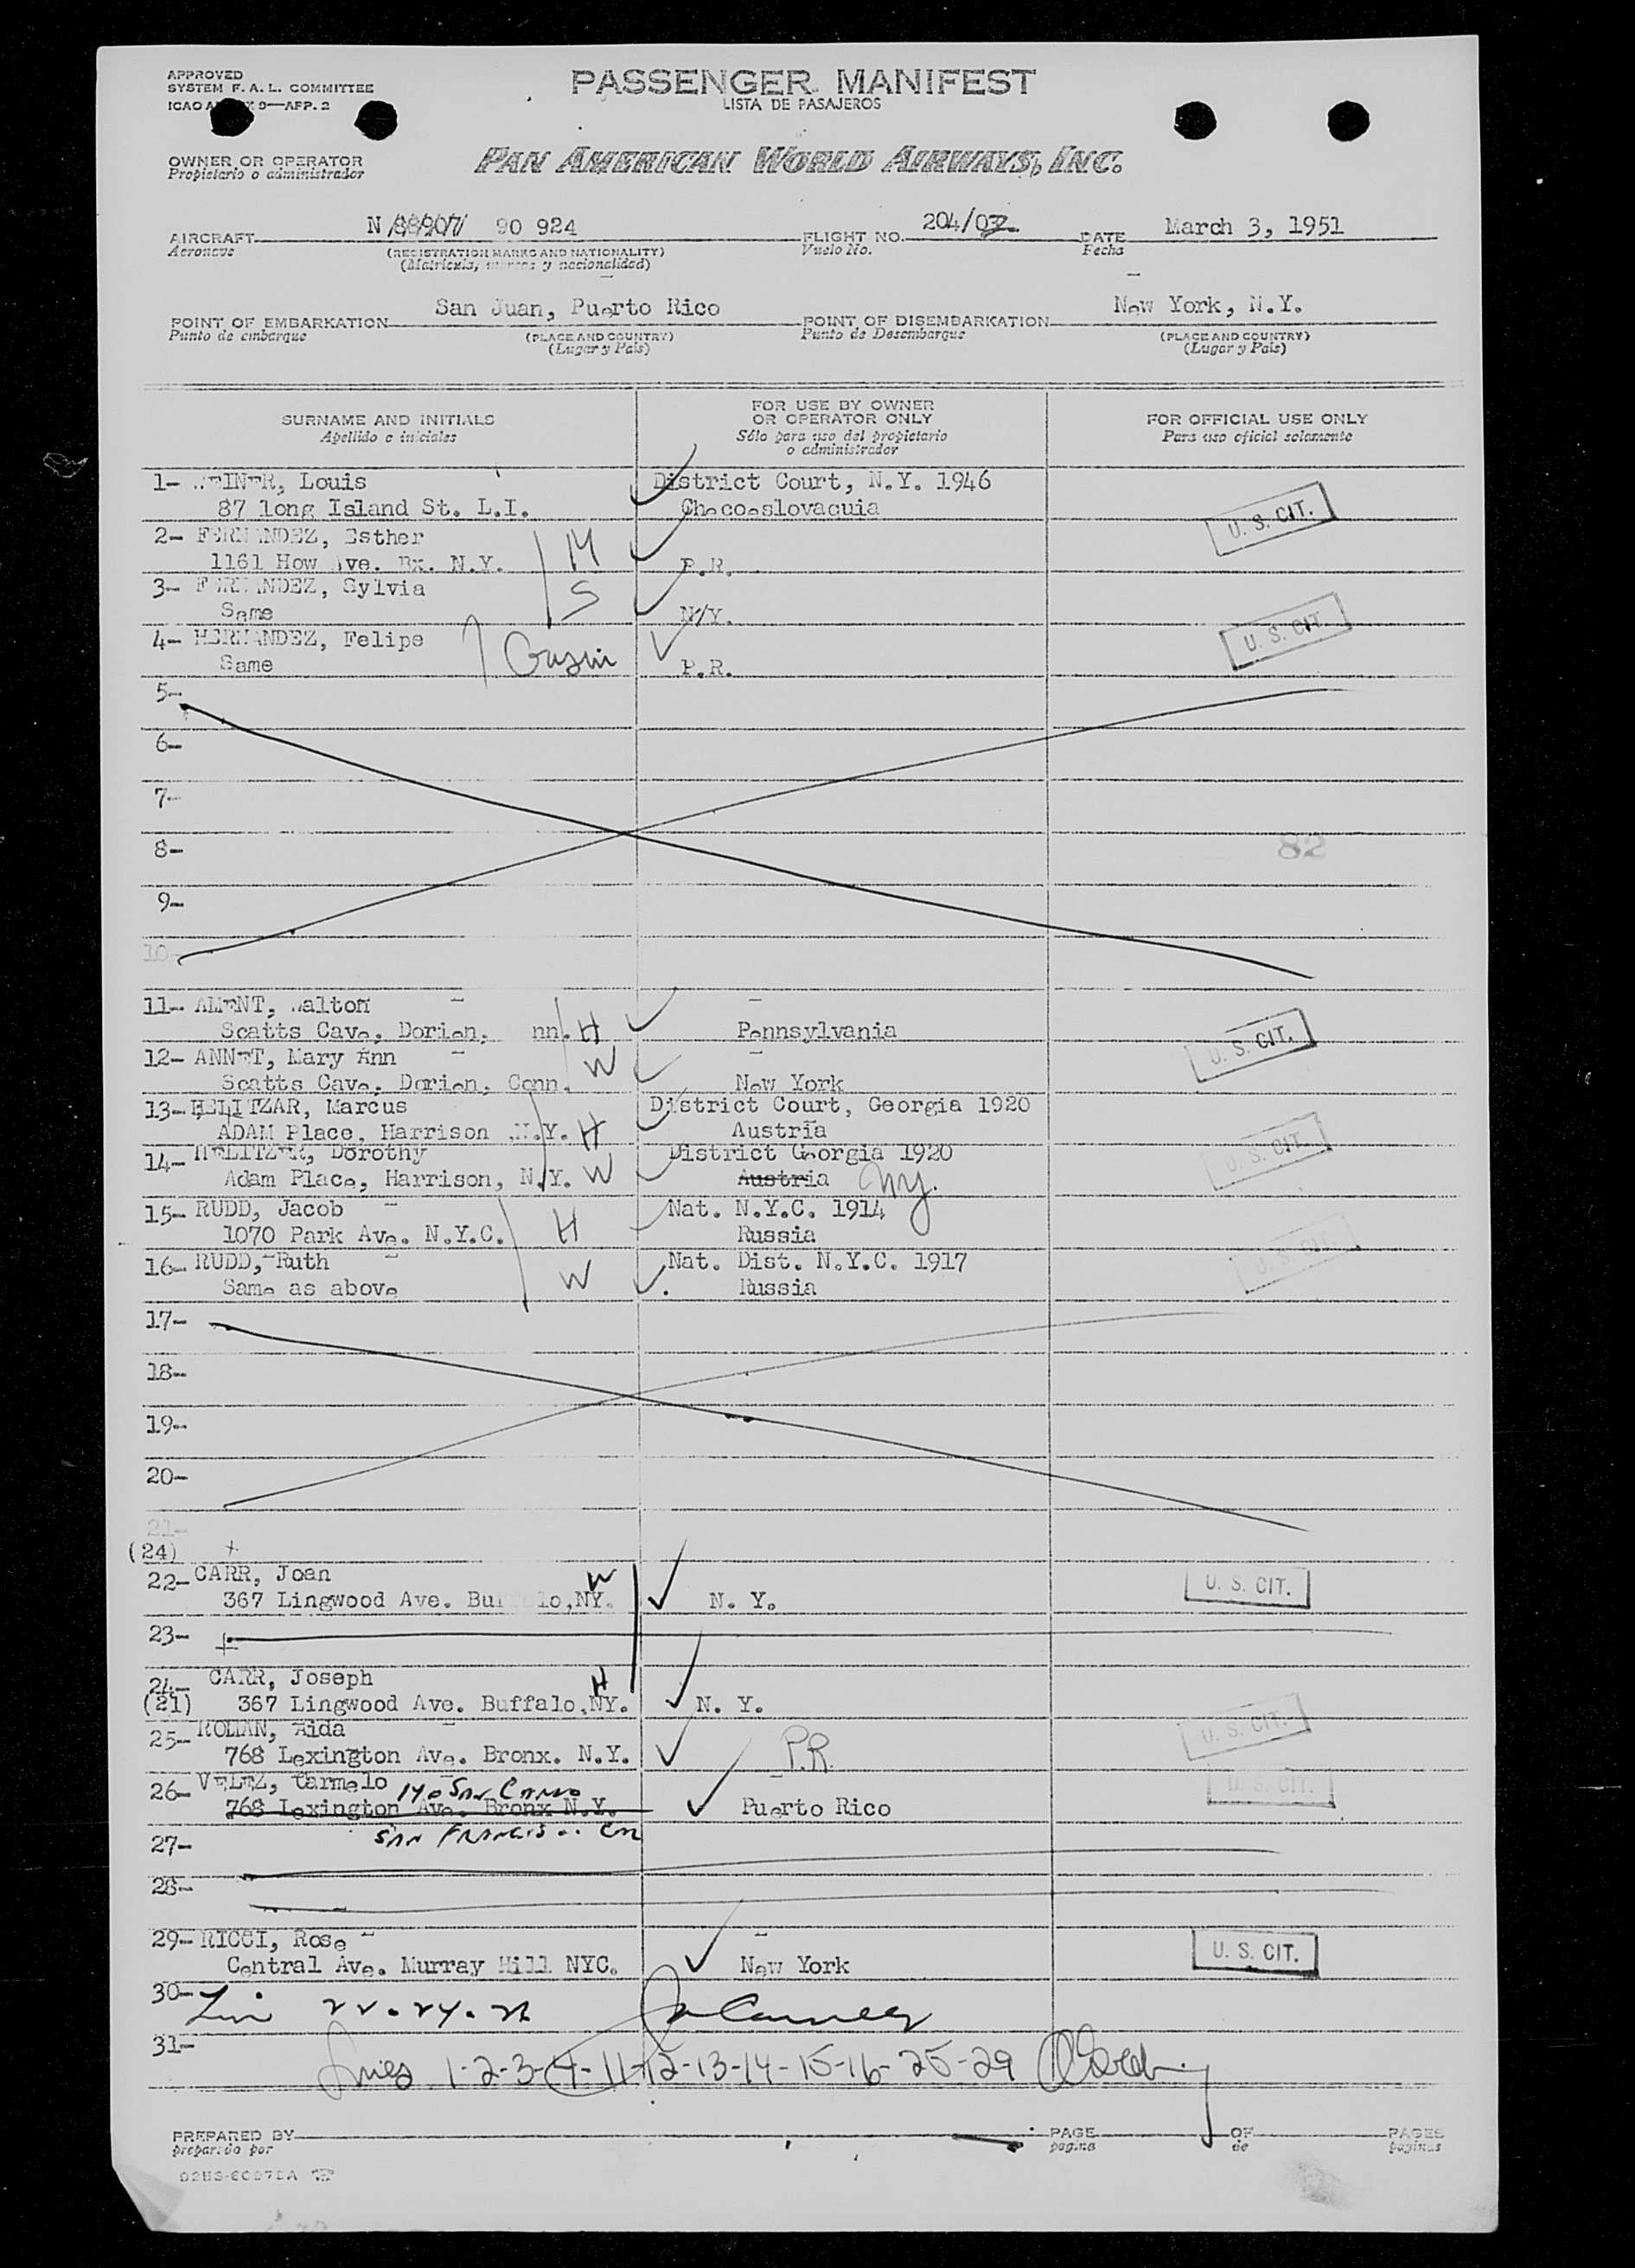 APPROVED
SYSTEM F. A. L. COMMITTEE
ICAO 9—APP. 2
PASSENGER MANIFEST
LISTA DE PASAJEROS
OWNER OR OPERATOR
Propietario o administrador
PAN AMERICAN WORLD AIRWAYS, INC.
AIRCRAFT N 90 924 FLIGHT NO. 204/ DATE March 3, 1951
Aeronave (REGISTRATION MARKS AND NATIONALITY) Vuelo No. Fecha
(Matricula, marcas y nacionalidad)
POINT OF EMBARKATION San Juan, Puerto Rico POINT OF DISEMBARKATION New York, N.Y.
Punto de embarque (PLACE AND COUNTRY) Punto de Desembarque (PLACE AND COUNTRY)
(Lugar y Pais) (Lugar y Pais)
SURNAME AND INITIALS FOR USE BY OWNER OR OPERATOR ONLY FOR OFFICIAL USE ONLY
Apellido e iniciales Sólo para uso del propietario o administrador Para uso oficial solamente
1- WEINER, Louis District Court, N.Y. 1946
87 long Island St. L.I. Checoeslovaquia U. S. CIT.
2- FERNANDEZ, Esther M
1161 How Ave. Bx. N.Y. P.R.
3- FERNANDEZ, Sylvia S
Same N/Y.
4- HERNANDEZ, Felipe U. S. CIT.
Same P.R.
5-
6-
7-
8- 82
9-
10-
11- AMENT, Walton
Scatts Cave, Dorien, nn. H Pennsylvania U. S. CIT.
12- ANNET, Mary Ann W
Scatts Cave, Dorien, Conn. New York
13- HELITZAR, Marcus District Court, Georgia 1920
ADAM Place, Harrison N.Y. H Austria U. S. CIT.
14- HELITZER, Dorothy District Georgia 1920
Adam Place, Harrison, N.Y. W Austria NY.
15- RUDD, Jacob Nat. N.Y.C. 1914
1070 Park Ave. N.Y.C. H Russia U. S. CIT.
16- RUDD, Ruth Nat. Dist. N.Y.C. 1917
Same as above W Russia
17-
18-
19-
20-
21-
(24)
22- CARR, Joan W U. S. CIT.
367 Lingwood Ave. Buffalo, NY. N. Y.
23-
24- CARR, Joseph H
(21) 367 Lingwood Ave. Buffalo, NY. N. Y.
25- ROMAN, Aida U. S. CIT.
768 Lexington Ave. Bronx. N.Y. P.R.
26- VELEZ, Carmelo 140 SAN U. S. CIT.
768 Lexington Ave. Bronx N.Y. Puerto Rico
27- SAN
28-
29- RICCI, Rose U. S. CIT.
Central Ave. Murray Hill NYC. New York
30-
31-
1-2-3-4-11-12-13-14-15-16-25-29
PREPARED BY PAGE OF PAGES
preparado por pagina de paginas